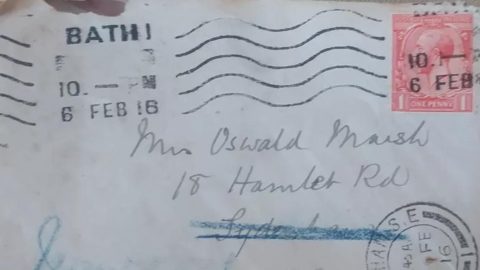 BATH
10. — PM
6 FEB 16
10. —
6 FEB
ONE PENNY
1 1
Mrs Oswald Marsh
18 Hamlet Rd
S.E
FE
16